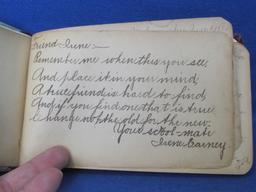 Friend Irene,—
Remember me when this you see,
And place it in your mind,
A true friend is hard to find
And if you find one that is true
Change not the old for the new.
Your school-mate
Irene Carney